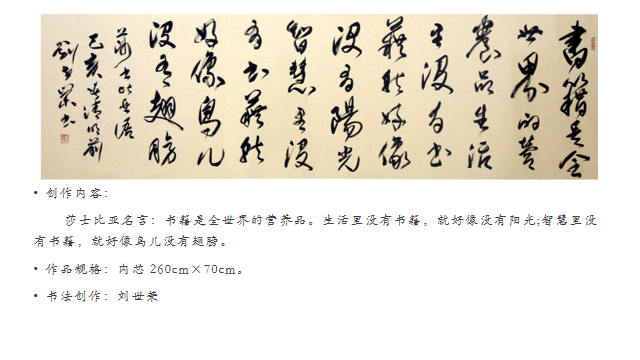 書籍是全
世界的营
養品生活
里沒有书
籍就好像
沒有陽光
智慧里沒
有书籍就
好像鳥儿
沒有翅膀
莎士比亚语
己亥年清明前
劉世榮书
• 创作内容：
莎士比亚名言：书籍是全世界的营养品。生活里没有书籍，就好像没有阳光;智慧里没
有书籍，就好像鸟儿没有翅膀。
• 作品规格：内芯 260cm×70cm。
• 书法创作：刘世荣